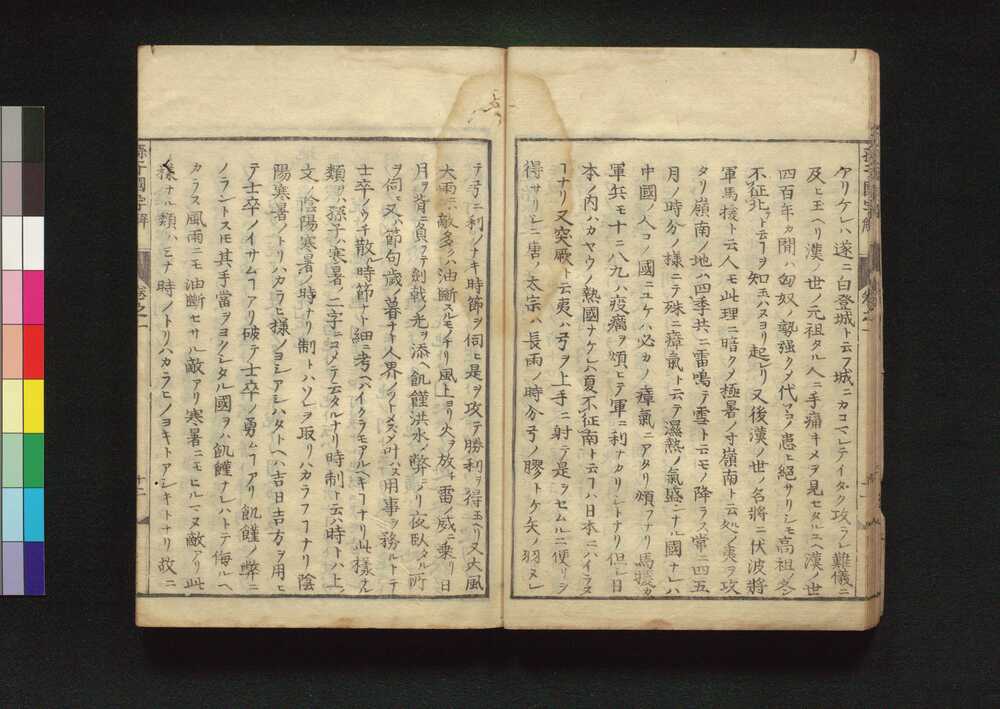 ケリケレハ遂ニ白登城ト云フ城ニカコマレテイタク攻ラレ難儀ニ
及ヒ玉ヘリ漢ノ世ノ元祖タル人ニ手痛キメヲ見セタルユヘ漢ノ世
四百年カ間ハ匈奴ノ勢強ク代々コノ患ヒ絶サリシモ高祖ノ冬
不征北ト云フヿヲ知玉ハスヨリ起レリ又後漢ノ世ノ名將ニ伏波將
軍馬援ト云人モ此理ニ暗ク極暑ノ寸嶺南ト云処ノ夷ヲ攻
タリ嶺南ノ地ハ四季共ニ雷鳴テ雪ト云モノ降ラス常ニ四五
月ノ時分ノ様ニテ殊ニ瘴氣ト云テ濕熱ノ氣盛ンナル國ナレハ
中國ノ人コノ國ニユケハ必カノ瘴氣ニアタリ煩フナリ馬援カ
軍兵モ十ニ八九ハ疫癘ヲ煩ヒテ軍ニ利ナカリシトナリ但シ日
本ノ内ハカヤウノ熱國ナケレハ夏不征南ト云フハ日本ニハイラヌ
ヿナリ又突厥ト云夷ハ弓ヲ上手ニ射テ是ヲセムルニ便リヲ
得サリシニ唐ノ太宗ハ長雨ノ時分弓ノ膠トケ矢ノ羽ヌレ
孫子國字解
卷之一
十二
テ弓ニ利ノナキ時節ヲ伺ヒ是ヲ攻テ勝利ヲ得玉ヘリ又大風
大雨ニハ敵多クハ油斷スルモノナリ風上ヨリ火ヲ放チ雷ノ威ニ乗リ日
月ヲ背ニ負フテ劍戟ノ光ヲ添ヘ飢饉洪水ノ弊ヨリ夜臥タル所
ヲ伺ヒ又ハ節句歳ノ暮ナト人界ノツトメスンテ叶ハヌ用事ヲ務ルトテ
士卒ノウチ散ル時節ナト細ニ考ヘハイクラモアルヘキヿナリ此樣ナル
類ヲハ孫子ハ寒暑ノ二字ニコメテ云タルナリ時制ト云ハ時トハ上ノ
文ノ陰陽寒暑ノ時ナリ制トハソレヲ取リハカラフヿナリ陰
陽寒暑ノトリハカラヒ様ノヨシアシハタトヘハ吉日吉方ヲ用ヒ
テ士卒ノイサムヿアリ破テ士卒ノ勇ムヿアリ飢饉ノ弊ニ
ノラントスルモ其手當ヲヨクシタル國ヲハ飢饉ナレハトテ侮ルヘ
カラス風雨ニモ油斷セサル敵アリ寒暑ニモヒルマヌ敵アリ此
様ナル類ハミナ時ノトリハカラヒノヨキトアシキトナリ故ニ